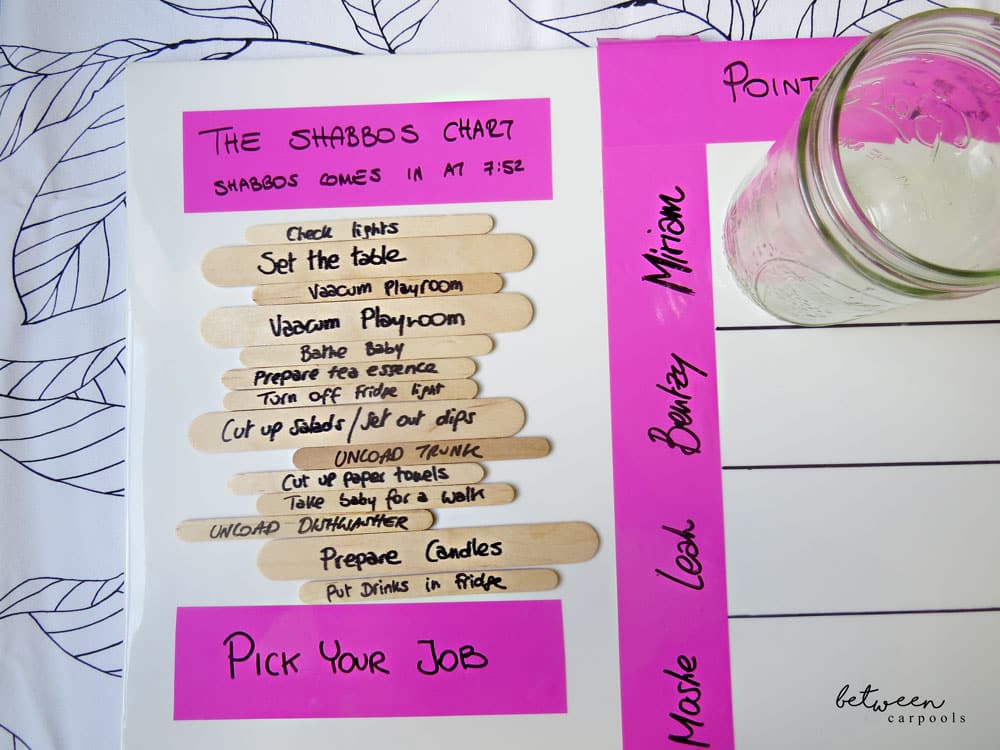 THE SHABBOS CHART
SHABBOS COMES IN AT 7:52
Check lights
Set the table
Vaacum Playroom
Vaacum Playroom
Bathe Baby
Prepare tea essence
Turn off Fridge light
Cut up Salads/Set out dips
UNLOAD TRUNK
Cut up paper towels
Take baby for a walk
UNLOAD DISHWASHER
Prepare Candles
Put Drinks in Fridge
PICK YOUR JOB
POINT
Miriam
Bentzy
Leah
Moshe
between
carpools